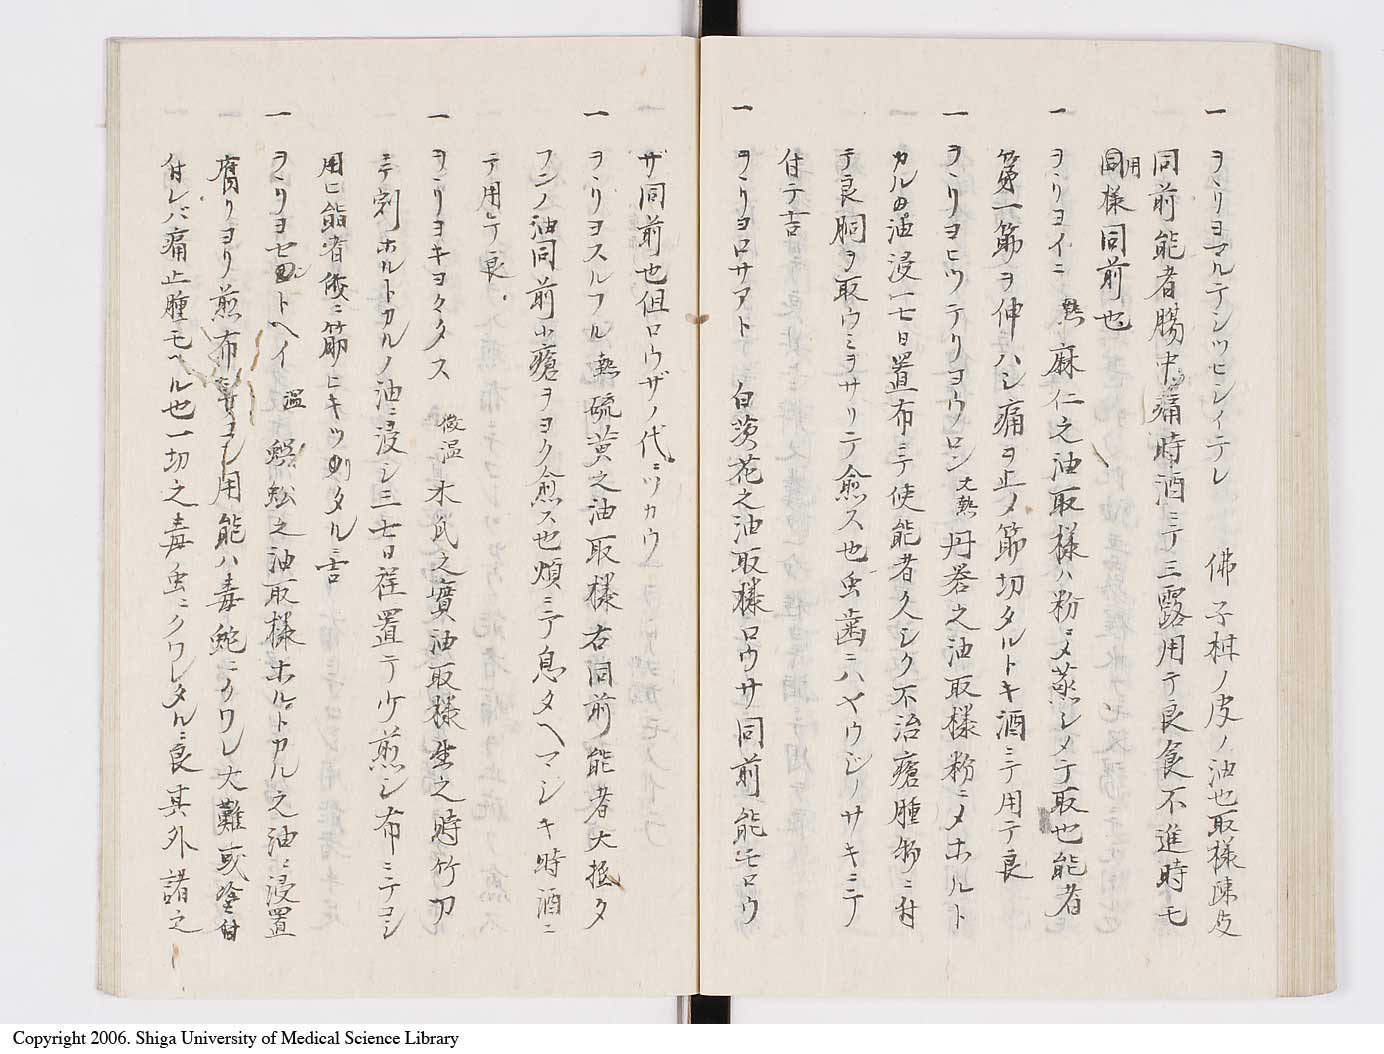 一 ヲヽリヨマルテンツヒシイテレ 佛子柑ノ皮ノ油也取様陳皮
同前能者腸中痛時酒ニテ三露用テ良食不進時モ
用同様同前也
一 ヲヽリヨイニ 熱 麻仁之油取様ハ粉ニメ蒸シメテ取也能者
第一筋ヲ伸ハシ痛ヲ止メ筋切タルトキ酒ニテ用テ良
一 ヲヽリヨヒツテリヨウノロン 大熱 丹礬之油取様粉ニメホルト
カルノ油浸一七日置布ニテ使能者久シク不治瘡腫物ニ付
テ良胴ヲ取ウミヲサリテ愈ス也虫歯ニハヤウジノサキニテ
付テ吉
一 ヲヽリヨロサアト 白茨花之油取様ロウサ同前能モロウ
ザ同前也但ロウザノ代ニツカウ
一 ヲヽリヨスルフル 熱 硫黄之油取様右同前能者大抵タ
フンノ油同前小瘡ヲヨク愈ス也煩ニテ息タヘマシキ時酒ニ
テ用テ良
一 ヲヽリヨキヨクタス 微温 木瓜之實油取様生之時竹刀
ニテ割ホルトカルノ油ニ浸シ三七日程置テ少煎シ布ニテコシ
用ヒ能者痿ニ筋ヒキツリタルニ吉
一 ヲヽリヨセ トヘイ 温 蜈蚣之油取様ホルトカル之油ニ浸置
腐リヨリ煎布ニテコシ用能ハ毒蛇ニクワレ大難或塗付
付レバ痛止腫モヘル也一切之毒虫ニクワレタルニ良其外諸之
Copyright 2006. Shiga University of Medical Science Library